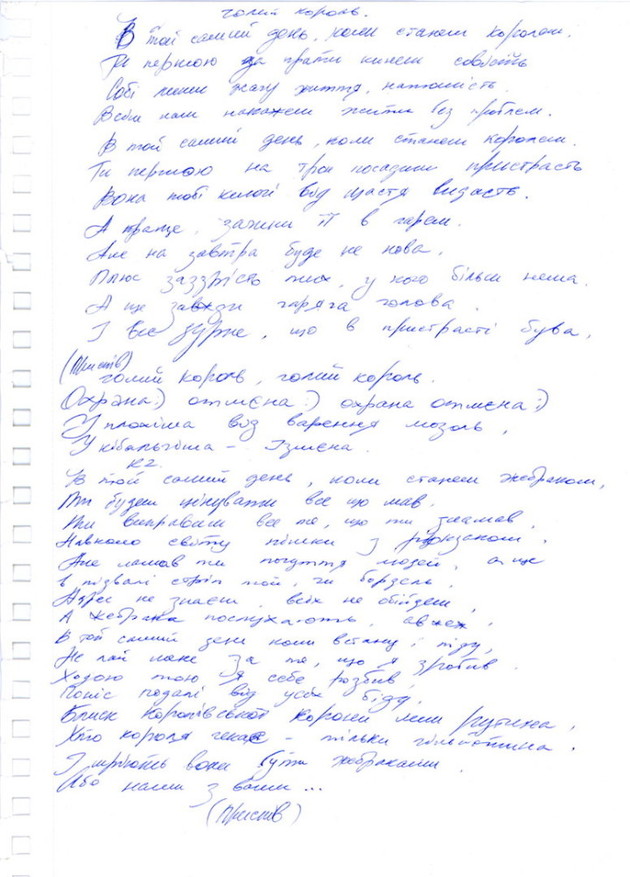 голий король.
В той самий день, коли станеш королем.
Ти першою за ґрати кинеш совість
Собі лиши жагу життя, натомість.
Всім нам накажеш жити без проблем.
В той самий день, коли станеш королем.
Ти першою на трон посадиш пристрасть
Вона тобі килог від щастя видасть.
А краще, зачини її в гарем.
Але на завтра буде не нова,
Плюс заздрість тих, у кого більш нема.
А ще завжди гаряча голова.
І все дурне, що в пристрасті бува,
(Приспів)
голий король, голий король.
Охрана:) отмєна:) охрана отмєна:)
У плохіша від варення мозоль,
У кібальчіша – Ізмєна.
К2.
В той самий день, коли станеш жебраком,
Ти будеш цінувати все що мав.
Ти виправиш все те, що ти зламав,
Навколо світу пішки з рюкзаком.
Але ламав ти почуття людей, а ще
в підвалі стріп той, чи бордель,
Адрес не знаєш, всіх не обійдеш,
А жебрака послухають, авжеж,
В той самий день коли встану і піду,
Не лай мене за те, що я зробив.
Ходою тою я себе розбив,
Поніс подалі від усіх біду.
Блиск королівської корони лиш рутина,
Хто короля чекає – тільки гільйотина.
І мріють вони бути жебраками
Або нами з вами...
(Приспів)